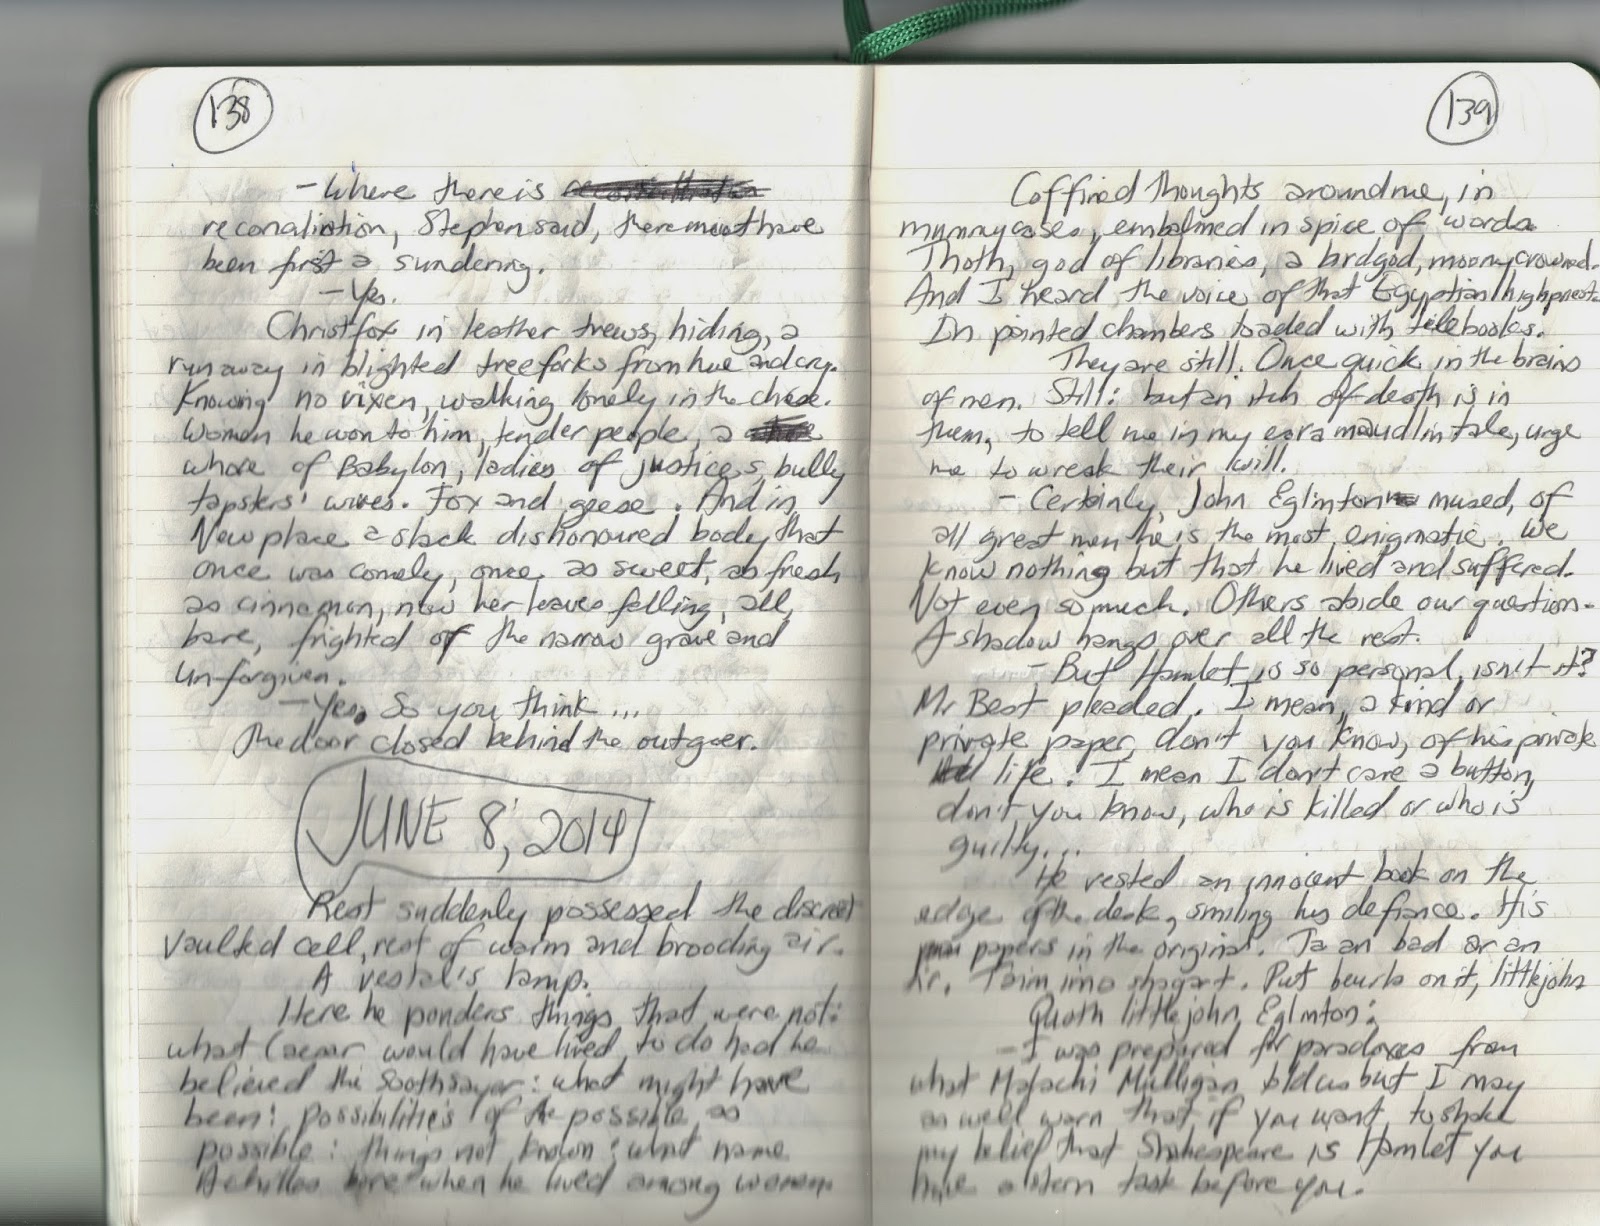 138
- Where there is
reconciliation, Stephen said, there must have
been first a sundering.
- Yes.
Christfox in leather trews, hiding, a
runaway in blighted treeforks from hue and cry.
Knowing no vixen, walking lonely in the chase.
Women he won to him, tender people, a
whore of Babylon, ladies of justices, bully
tapsters' wives. Fox and geese. And in
New place a slack dishonoured body that
once was comely, once as sweet, as fresh
as cinnamon, now her leaves falling, all,
bare, frighted of the narrow grave and
unforgiven.
- Yes. So you think...
The door closed behind the outgoer.
JUNE 8, 2014
Rest suddenly possessed the discreet
vaulted cell, rest of warm and brooding air.
A vestal's lamp.
Here he ponders things that were not:
what Caesar would have lived to do had he
believed the soothsayer: what might have
been: possibilities of the possible as
possible: things not known: what name
Achilles bore when he lived among women.
139
Coffined thoughts around me, in
mummycases, embalmed in spice of words.
Thoth, god of libraries, a birdgod, moonycrowned.
And I heard the voice of that Egyptian highpriest.
In painted chambers loaded with tilebooks.
They are still. Once quick in the brains
of men. Still: but an itch of death is in
them, to tell me in my ear a maudlin tale, urge
me to wreak their will.
- Certainly, John Eglinton mused, of
all great men he is the most enigmatic. We
know nothing but that he lived and suffered.
Not even so much. Others abide our question.
A shadow hangs over all the rest.
- But Hamlet is so personal, isn't it?
Mr Best pleaded. I mean, a kind of
private paper, don't you know, of his private
life. I mean I don't care a button,
don't you know, who is killed or who is
guilty...
He rested an innocent book on the
edge of the desk, smiling his defiance. His
papers in the original. Ta an bad ar an
tir. Taim imo shagart. Put beurla on it, littlejohn
Quoth littlejohn Eglinton:
- I was prepared for paradoxes from
what Malachi Mulligan told us but I may
as well warn that if you want to shake
my belief that Shakespeare is Hamlet you
have a stern task before you.